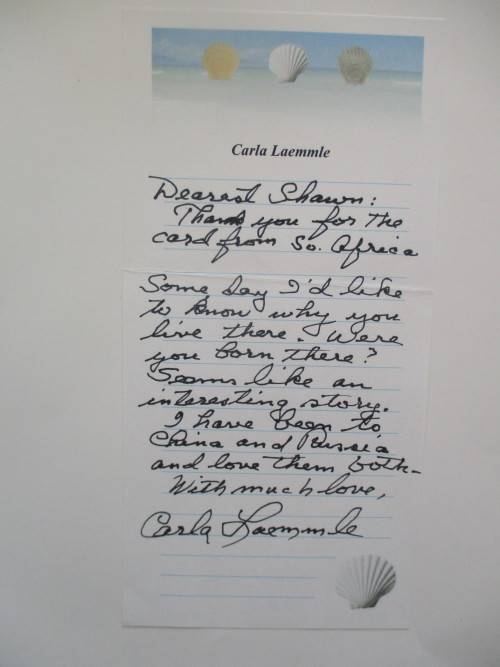 Carla Laemmle
Dearest Shawn:
Thank you for the
card from So. Africa
Some day I'd like
to know why you
live there. Were
you born there?
Seems like an
interesting story.
I have been to
China and Russia
and love them both—
With much love,
Carla Laemmle